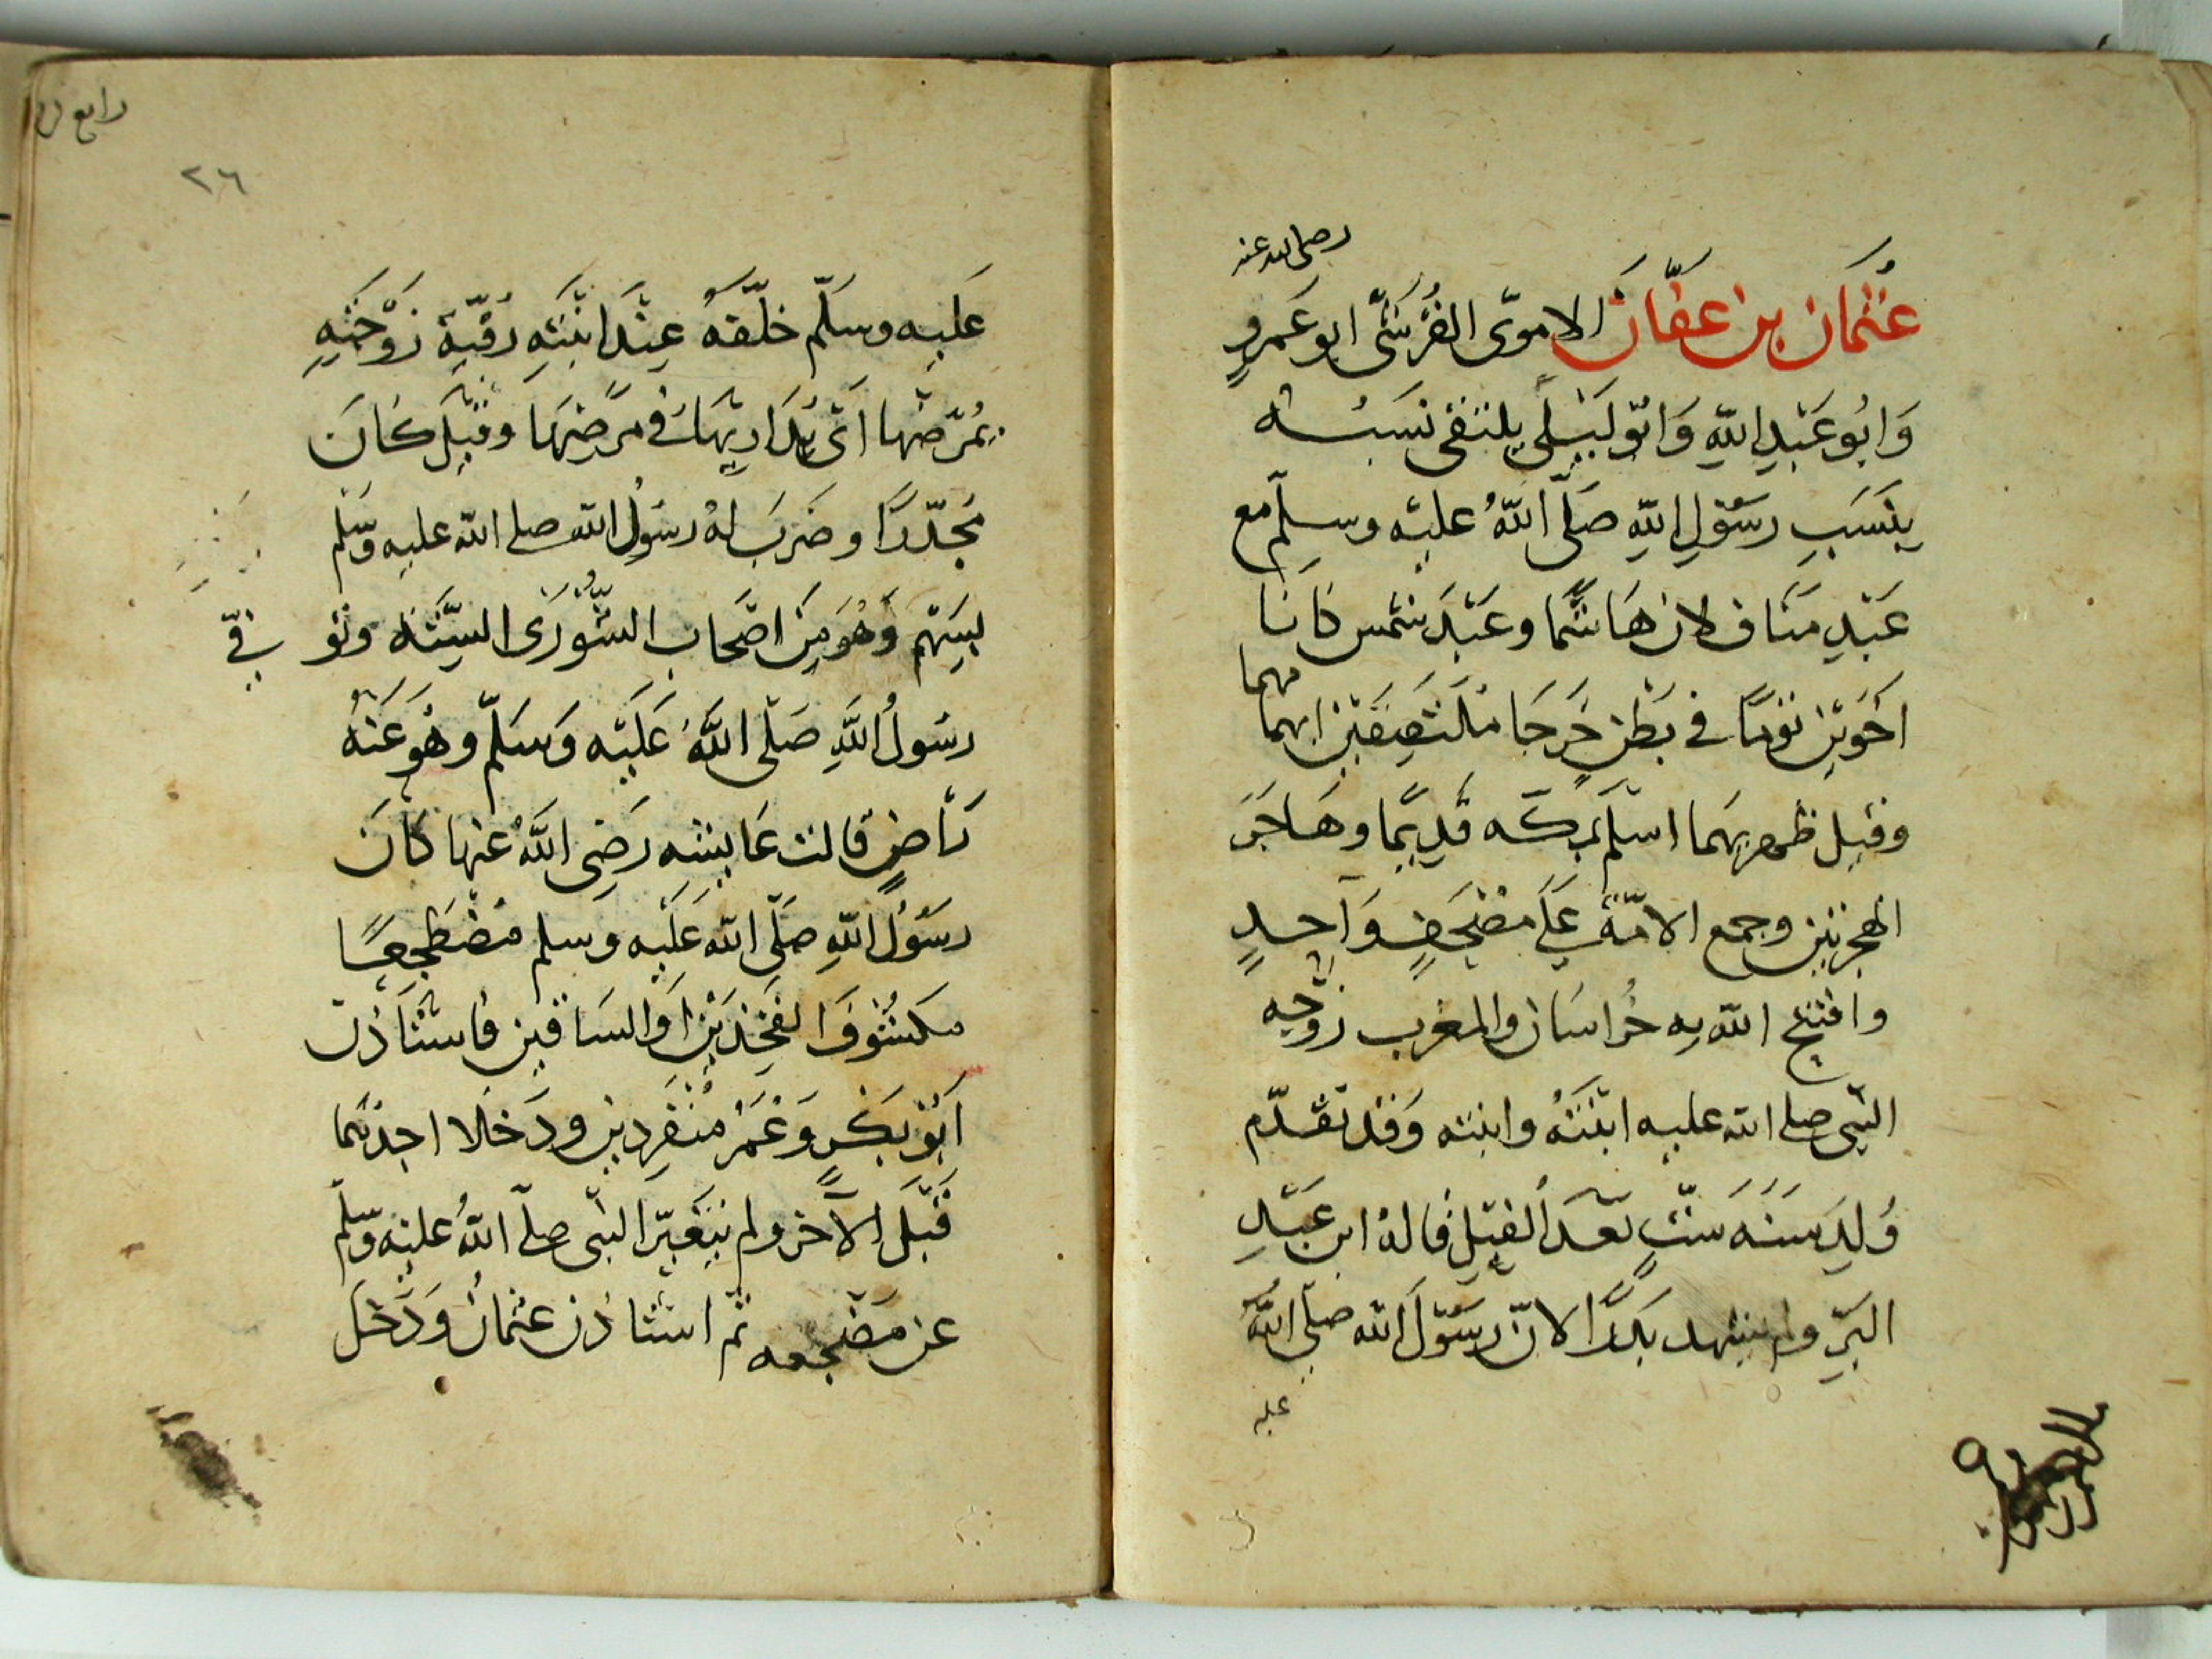 رضى الله عنه
عُثمَان بن عفَّانَ الاموىّ القُرَشىّ ابو عَمرٍو
وَابُو عَبْدِ اللّهِ وَابُو لَيْلَى يلتقى نسَبُه
بنَسَبِ رسُوْلِ اللّهِ صَلّى اللّهُ عليْه وسلّم مع
عَبْدِ مَنَاف لان هَاشمًا وعَبْدَ شمس كانَا
اخَوَيْن توءمًا فى بَطْنٍ خَرجَا مُلْتَصِقَيْن ابهما
مهما
وقيل ظهريهمَا اسْلَم بمكّه قديمًا وهَاجَرَ
الهجرتين وجمع الامّةَ عَلَى مصْحَفٍ وَاحدٍ
وافتتح الله به خُراسَان والمغرب زوّجه
النّبى صلى الله عليه ابْنَتَهُ وابنته وَقد تقدّم
وُلِدَ سَنَه سِتٍّ بَعدَ الفيْلِ قالهُ ابن عَبْدِ
البَرِّ ولم يشهد بَدْرًا لانّ رسُوْلَ الله صلّى اللّهُ
عليه
رابع
٢٦
عَليه وسَلّم خلّفهُ عِنْدَ ابْنَتِهِ رُقَيّة زَوْجَتِهِ
يُمرّضُهَا اَىْ يُدَاريهَا فى مَرَضِهَا وقيْلَ كَانَ
مُجَدّرًا وضَرَبَ لهُ رسُوْلُ الله صلى الله عليه وسَلّم
بسَهْم وَهُوَ مِنَ اصْحَاب الشُّوْرَى السِّتَّة وتُوُفّى
رسُولُ اللَّهِ صَلّى اللَّهُ عَلَيْه وَسَلّم وهُو عَنْهُ
رَاضٍ قالت عَايشه رَضِى اللَّهُ عنها كانَ
رسُوْلُ اللّهِ صَلّى الله عَلَيْه وسلم مُضْطَجِعًا
مكشُوفَ الفَخِذَيْن اوَالسَاقَين فاسْتَاذَنَ
اَبُوْ بَكْرٍ وَعُمَرُ مُنْفَرِدين ودَخَلا احدُهُما
قَبْلَ الآخر ولم يتَغَيّر النّبى صلّى اللّهُ عليْه وسَلّم
عن مَضْجعه ثمّ اسْتاذن عثمانُ وَدَخَل